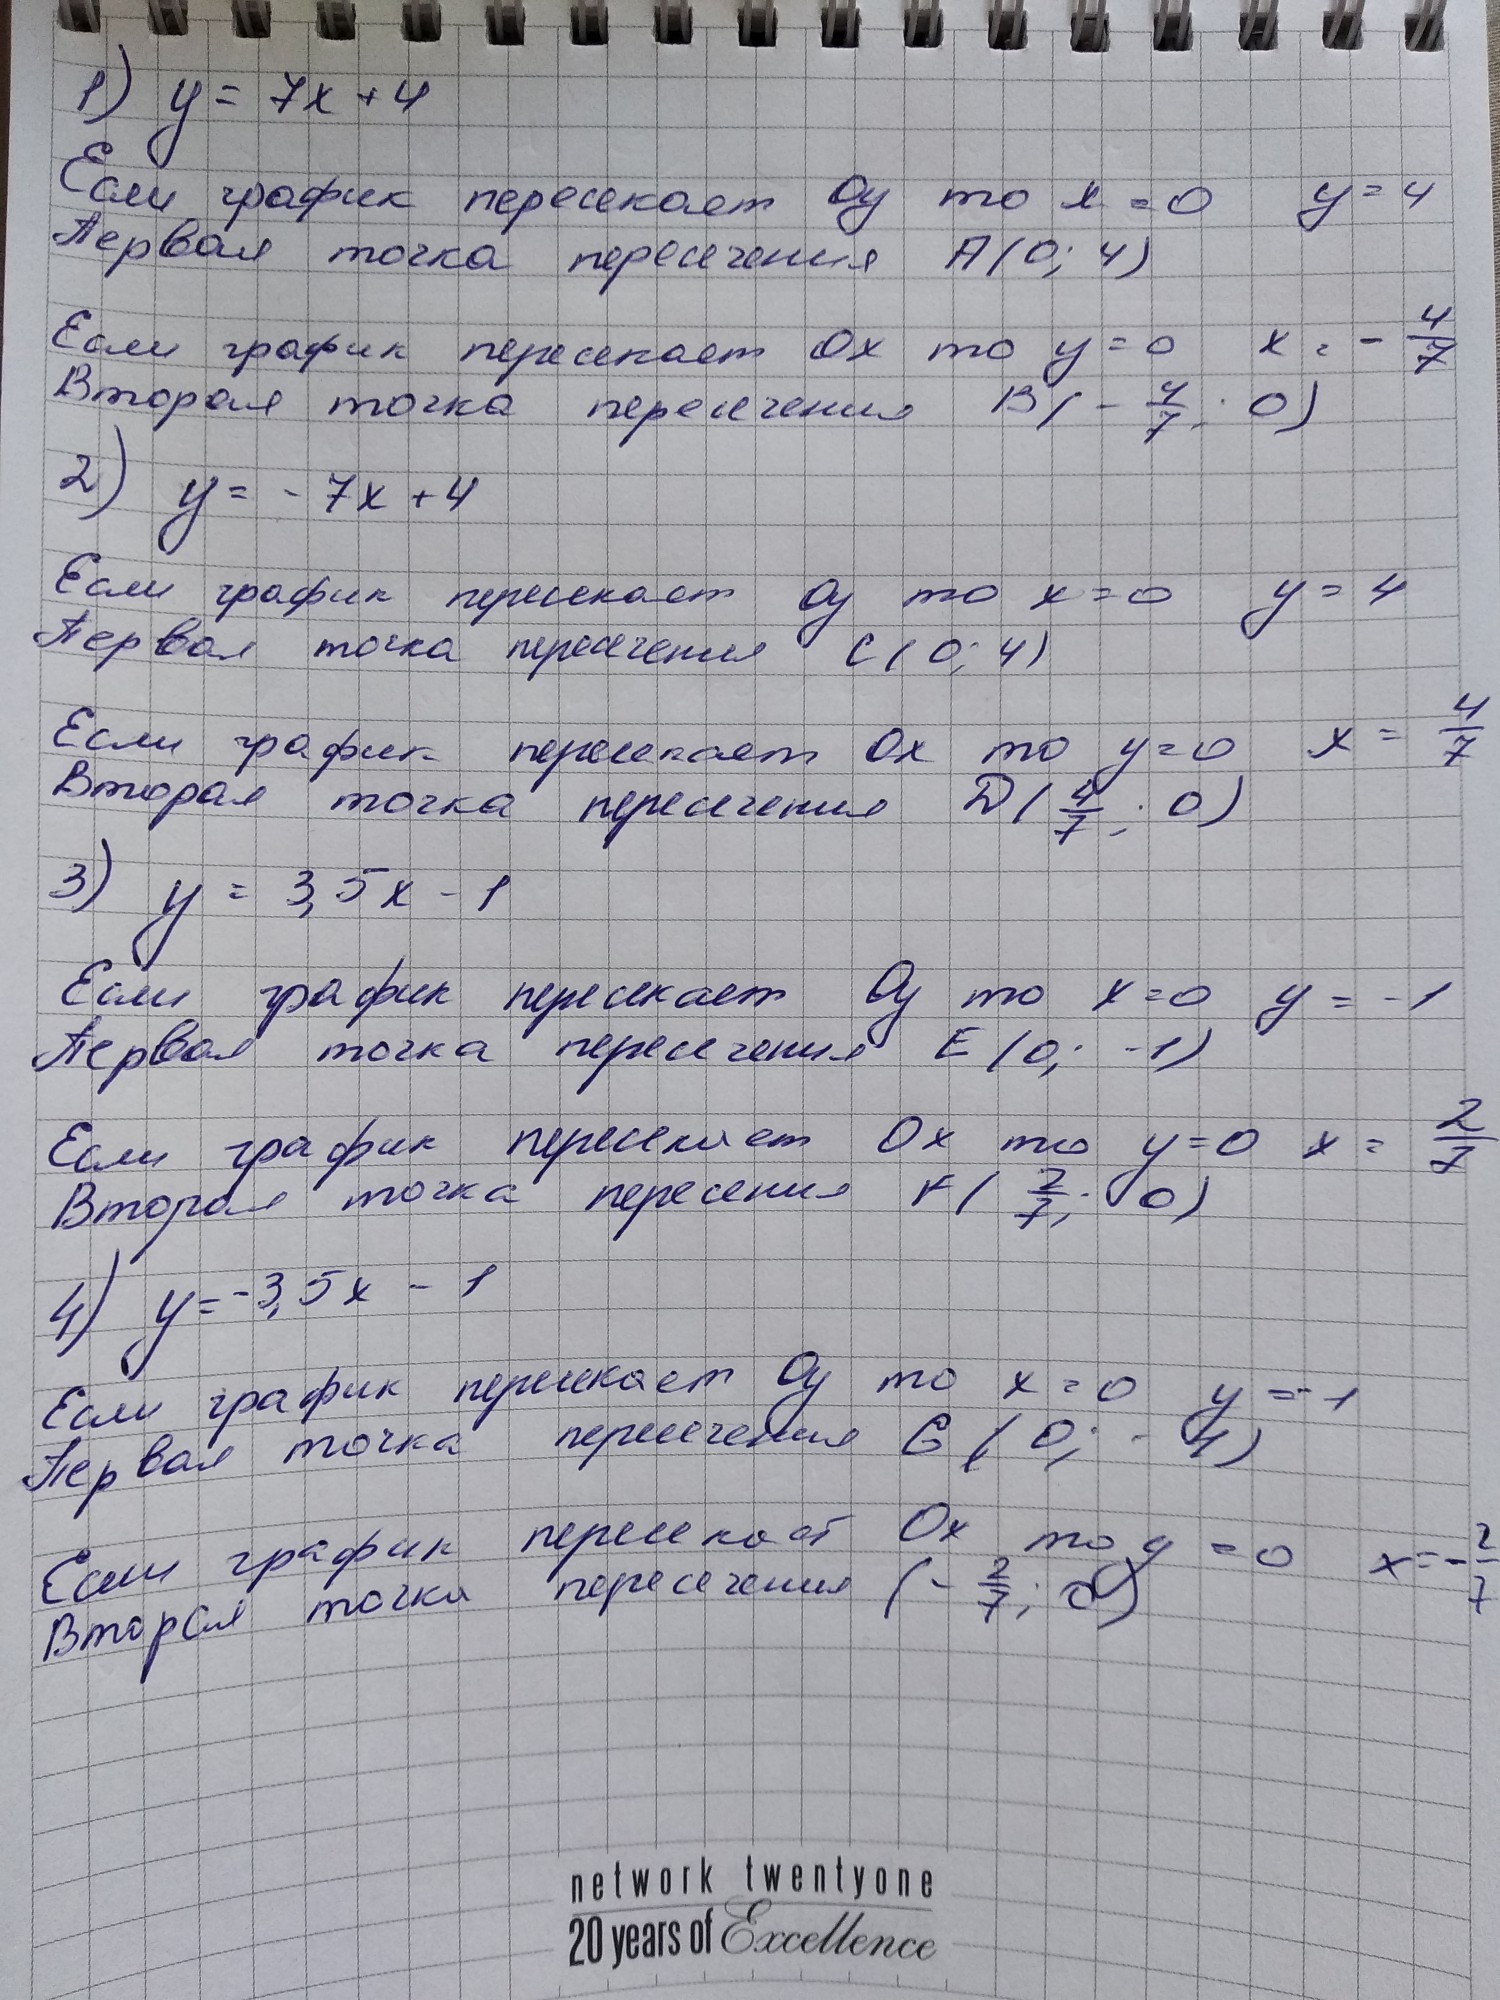 1) y = 7x + 4
Если график пересекает Oy то x = 0 y = 4
Первая точка пересечения A(0; 4)
Если график пересекает Ox то y = 0 x = - 4/7
Вторая точка пересечения B(- 4/7; 0)
2) y = - 7x + 4
Если график пересекает Oy то x = 0 y = 4
Первая точка пересечения C(0; 4)
Если график пересекает Ox то y = 0 x = 4/7
Вторая точка пересечения D(4/7; 0)
3) y = 3,5x - 1
Если график пересекает Oy то x = 0 y = -1
Первая точка пересечения E(0; -1)
Если график пересекает Ox то y = 0 x = 2/7
Вторая точка пересения F(2/7; 0)
4) y = -3,5x - 1
Если график пересекает Oy то x = 0 y = -1
Первая точка пересечения G(0; - 4)
Если график пересекает Ox то y = 0 x = - 2/7
Вторая точка пересечения (- 2/7; 0)
network twentyone
20 years of Excellence